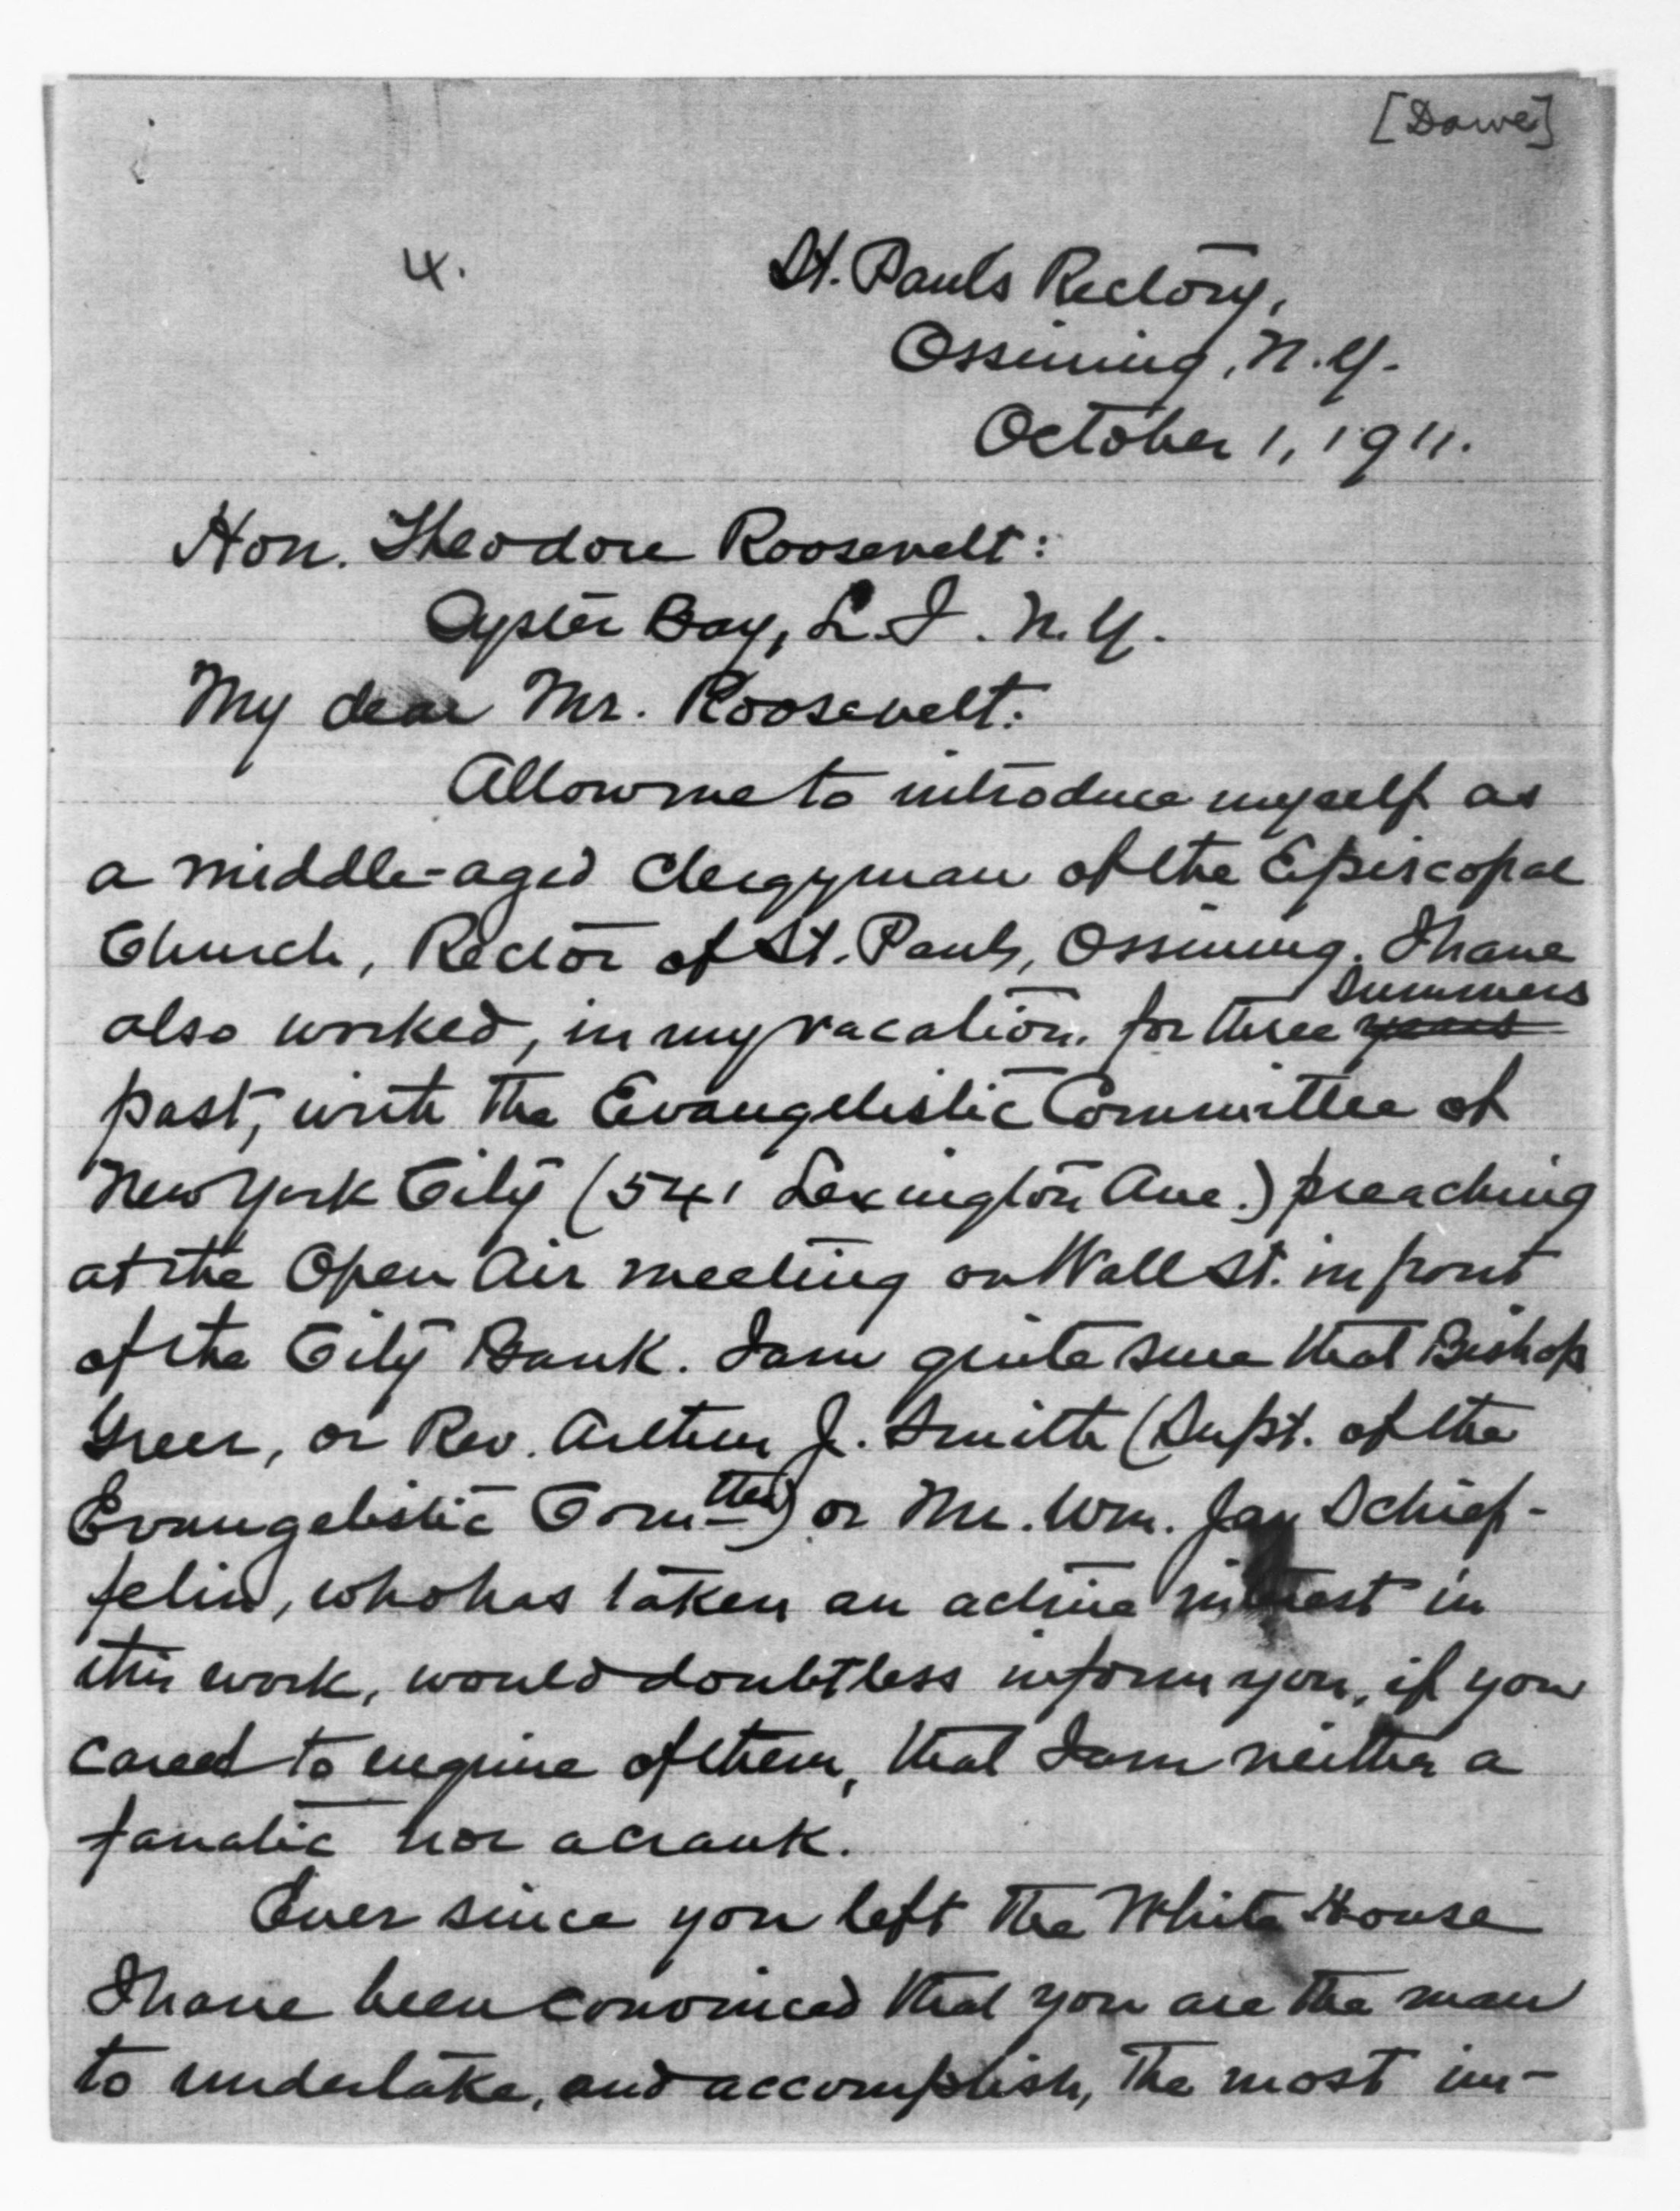 [Dawe]
4.
St. Pauls Rectory,
Ossining, N.Y.
October 1, 1911.
Hon. Theodore Roosevelt:
Oyster Bay, L.I. N.Y.
My dear Mr. Roosevelt:
Allow me to introduce myself as
a middle-aged clergyman of the Episcopal
Church, Rector of St. Pauls, Ossining. I have
summers
also worked, in my vacation, for three years
past, with the Evangelistic Committee of
New York City (541 Lexington Ave.) preaching
at the Open Air meeting on Wall St. in front
of the City Bank. I am quite sure that Bishop
Greer, or Rev. Arthur J. Smith (Supt. of the
Evangelistic Comttee) or Mr. Wm. Jay Schief-
felin, who has taken an active interest in
this work, would doubtless inform you, if you
cared to enquire of them, that I am neither a
fanatic nor a crank.
Ever since you left the White House
I have been convinced that you are the man
to undertake, and accomplish, the most im-